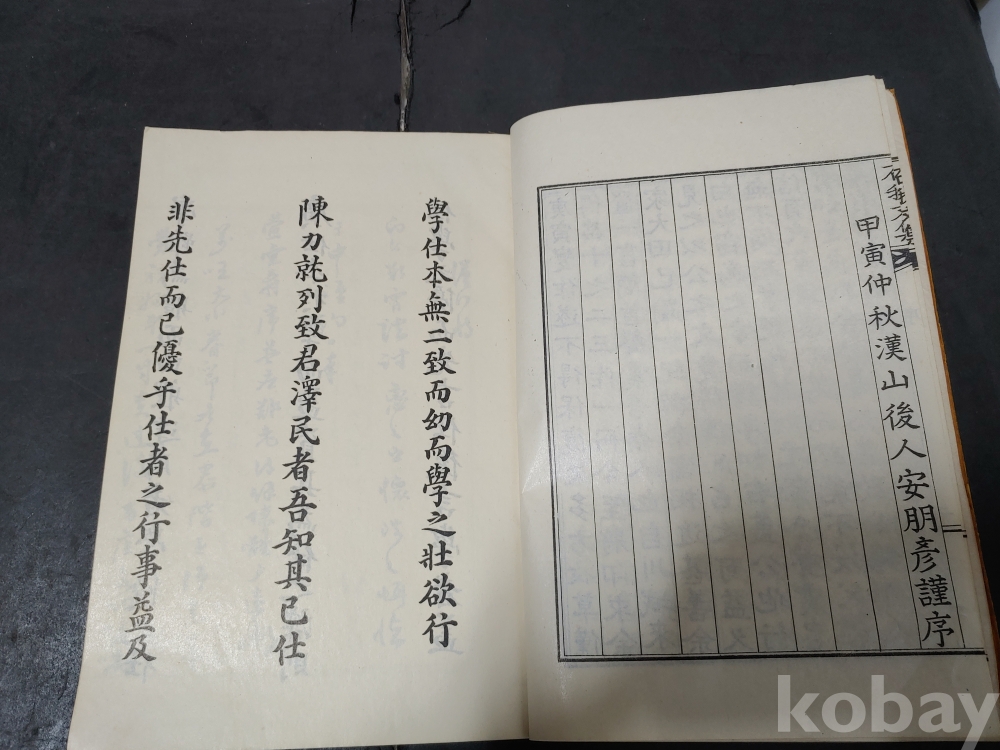 甲寅仲秋漢山後人安朋彥謹序
二
學仕本無二致而幼而學之壯欲行
陳力就列致君澤民者吾知其已仕
非先仕而已優乎仕者之行事益及
kobay